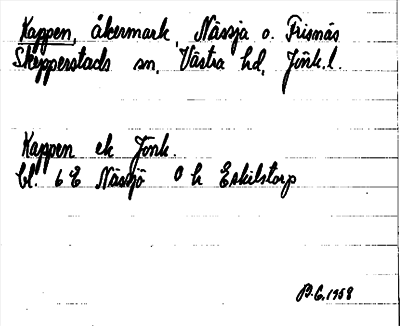 Kappen, åkermark, Nässja o. Frisnäs
Skepperstads sn, Västra hd, Jönk.l.
Kappen ek Jönk.
bl. 6E Nässjö 0 h Eskilstorp
B.G. 1958